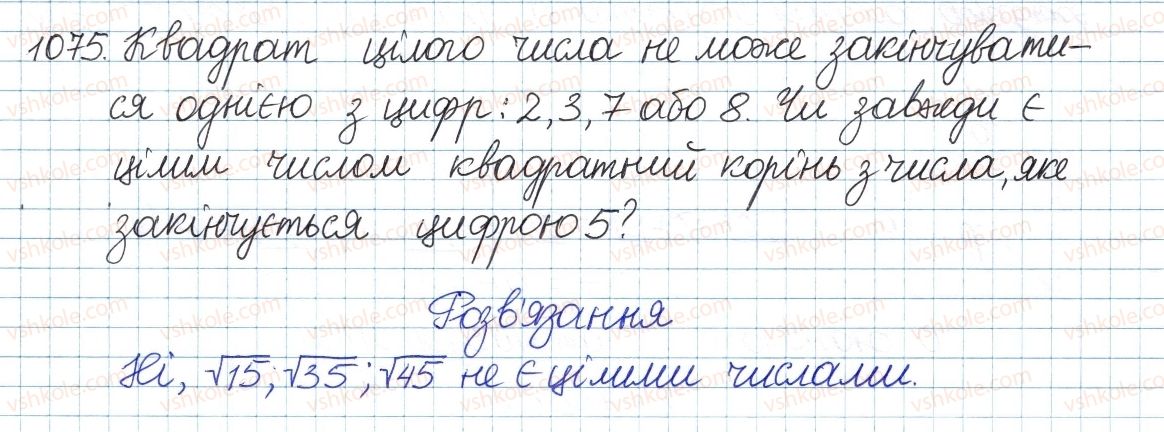 1075. Квадрат цілого числа не може закінчувати-
ся однією з цифр: 2, 3, 7 або 8. Чи завжди є
цілим числом квадратний корінь з числа, яке
закінчується цифрою 5?
Розв'язання
Ні, √15; √35; √45 не є цілими числами.